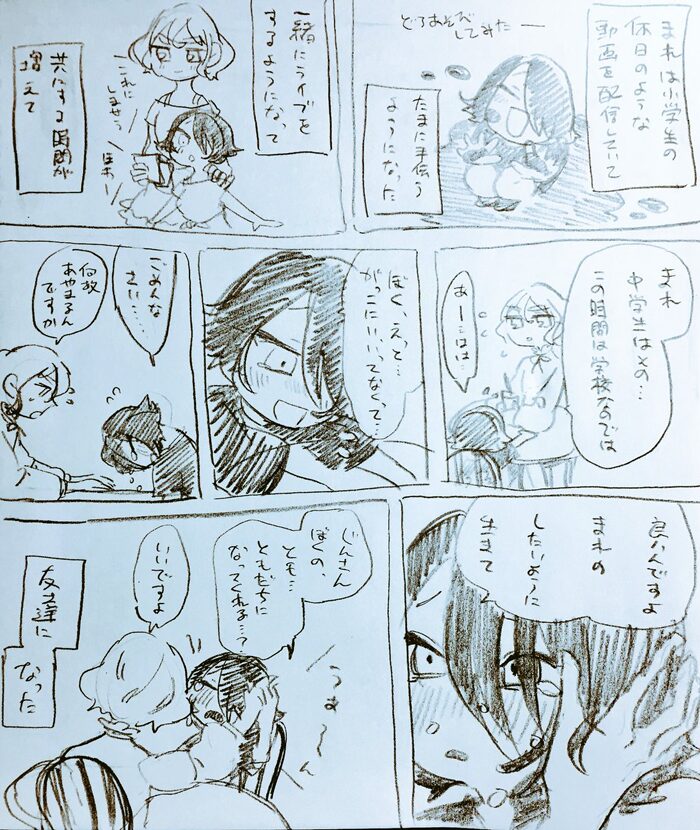 まれは小学生の
休日のような
動画を配信していて
どろあそび
してみたー
たまに手伝う
ようになった
一緒にライブを
するようになって
これに
しませう
ほわー
共にする時間が
増えて
まれ
中学生はその…
この時間は学校なのでは
あー…はは…
ぼく、えっと…
がっこにいいってなくて…
ごめんな
さい…
何故
あやまるん
ですか
良いんですよ
まれの
したいように
生きて
じんさん
ぼくの、
とも…
ともだちに
なってくれる…?
いいですよ
うぉ〜ん
友達に
なった